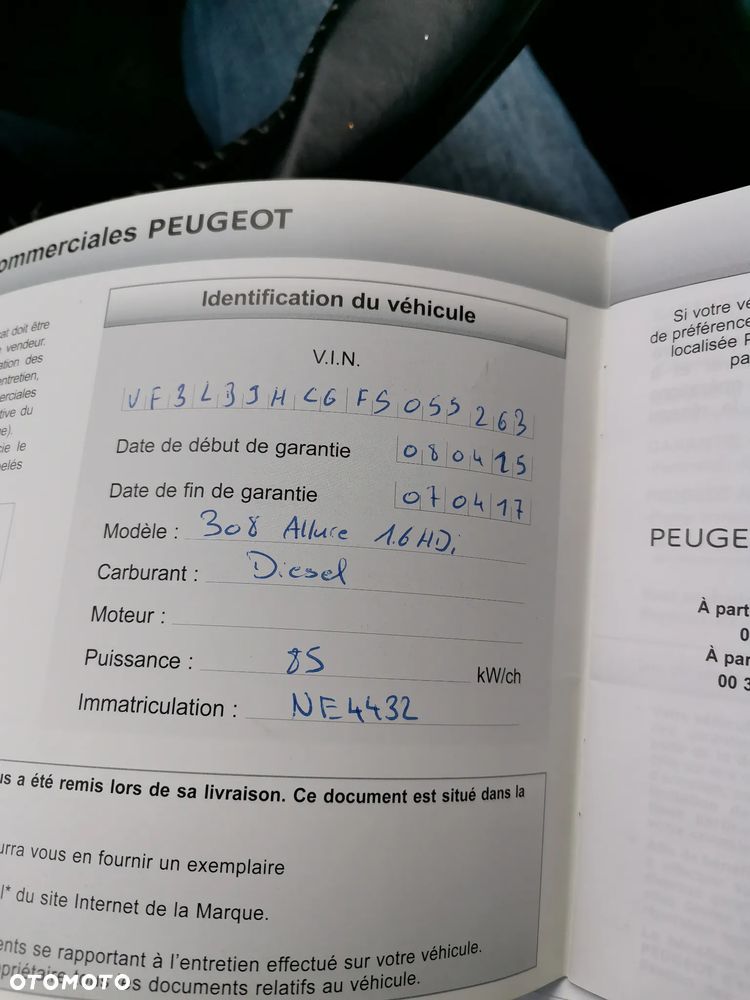 ommerciales PEUGEOT
Identification du véhicule
V.I.N.
VF3LB9HCGFS055263
Date de début de garantie 080415
Date de fin de garantie 070417
Modèle : 308 Allure 1.6 HDi
Carburant : Diesel
Moteur :
Puissance : 85 kW/ch
Immatriculation : NE4432
at doit être
vendeur.
ation des
ntretien,
erciales
tive du
e).
cie le
elés
us a été remis lors de sa livraison. Ce document est situé dans la
urra vous en fournir un exemplaire
l* du site Internet de la Marque.
ents se rapportant à l'entretien effectué sur votre véhicule.
priétaire les documents relatifs au véhicule.
Si votre vé
de préférence
localisée P
pa
PEUGE
À part
0
À par
00 3
OTOMOTO